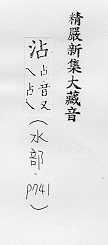 精嚴新集大藏音
沾占音又〵占〵(水部.P741)